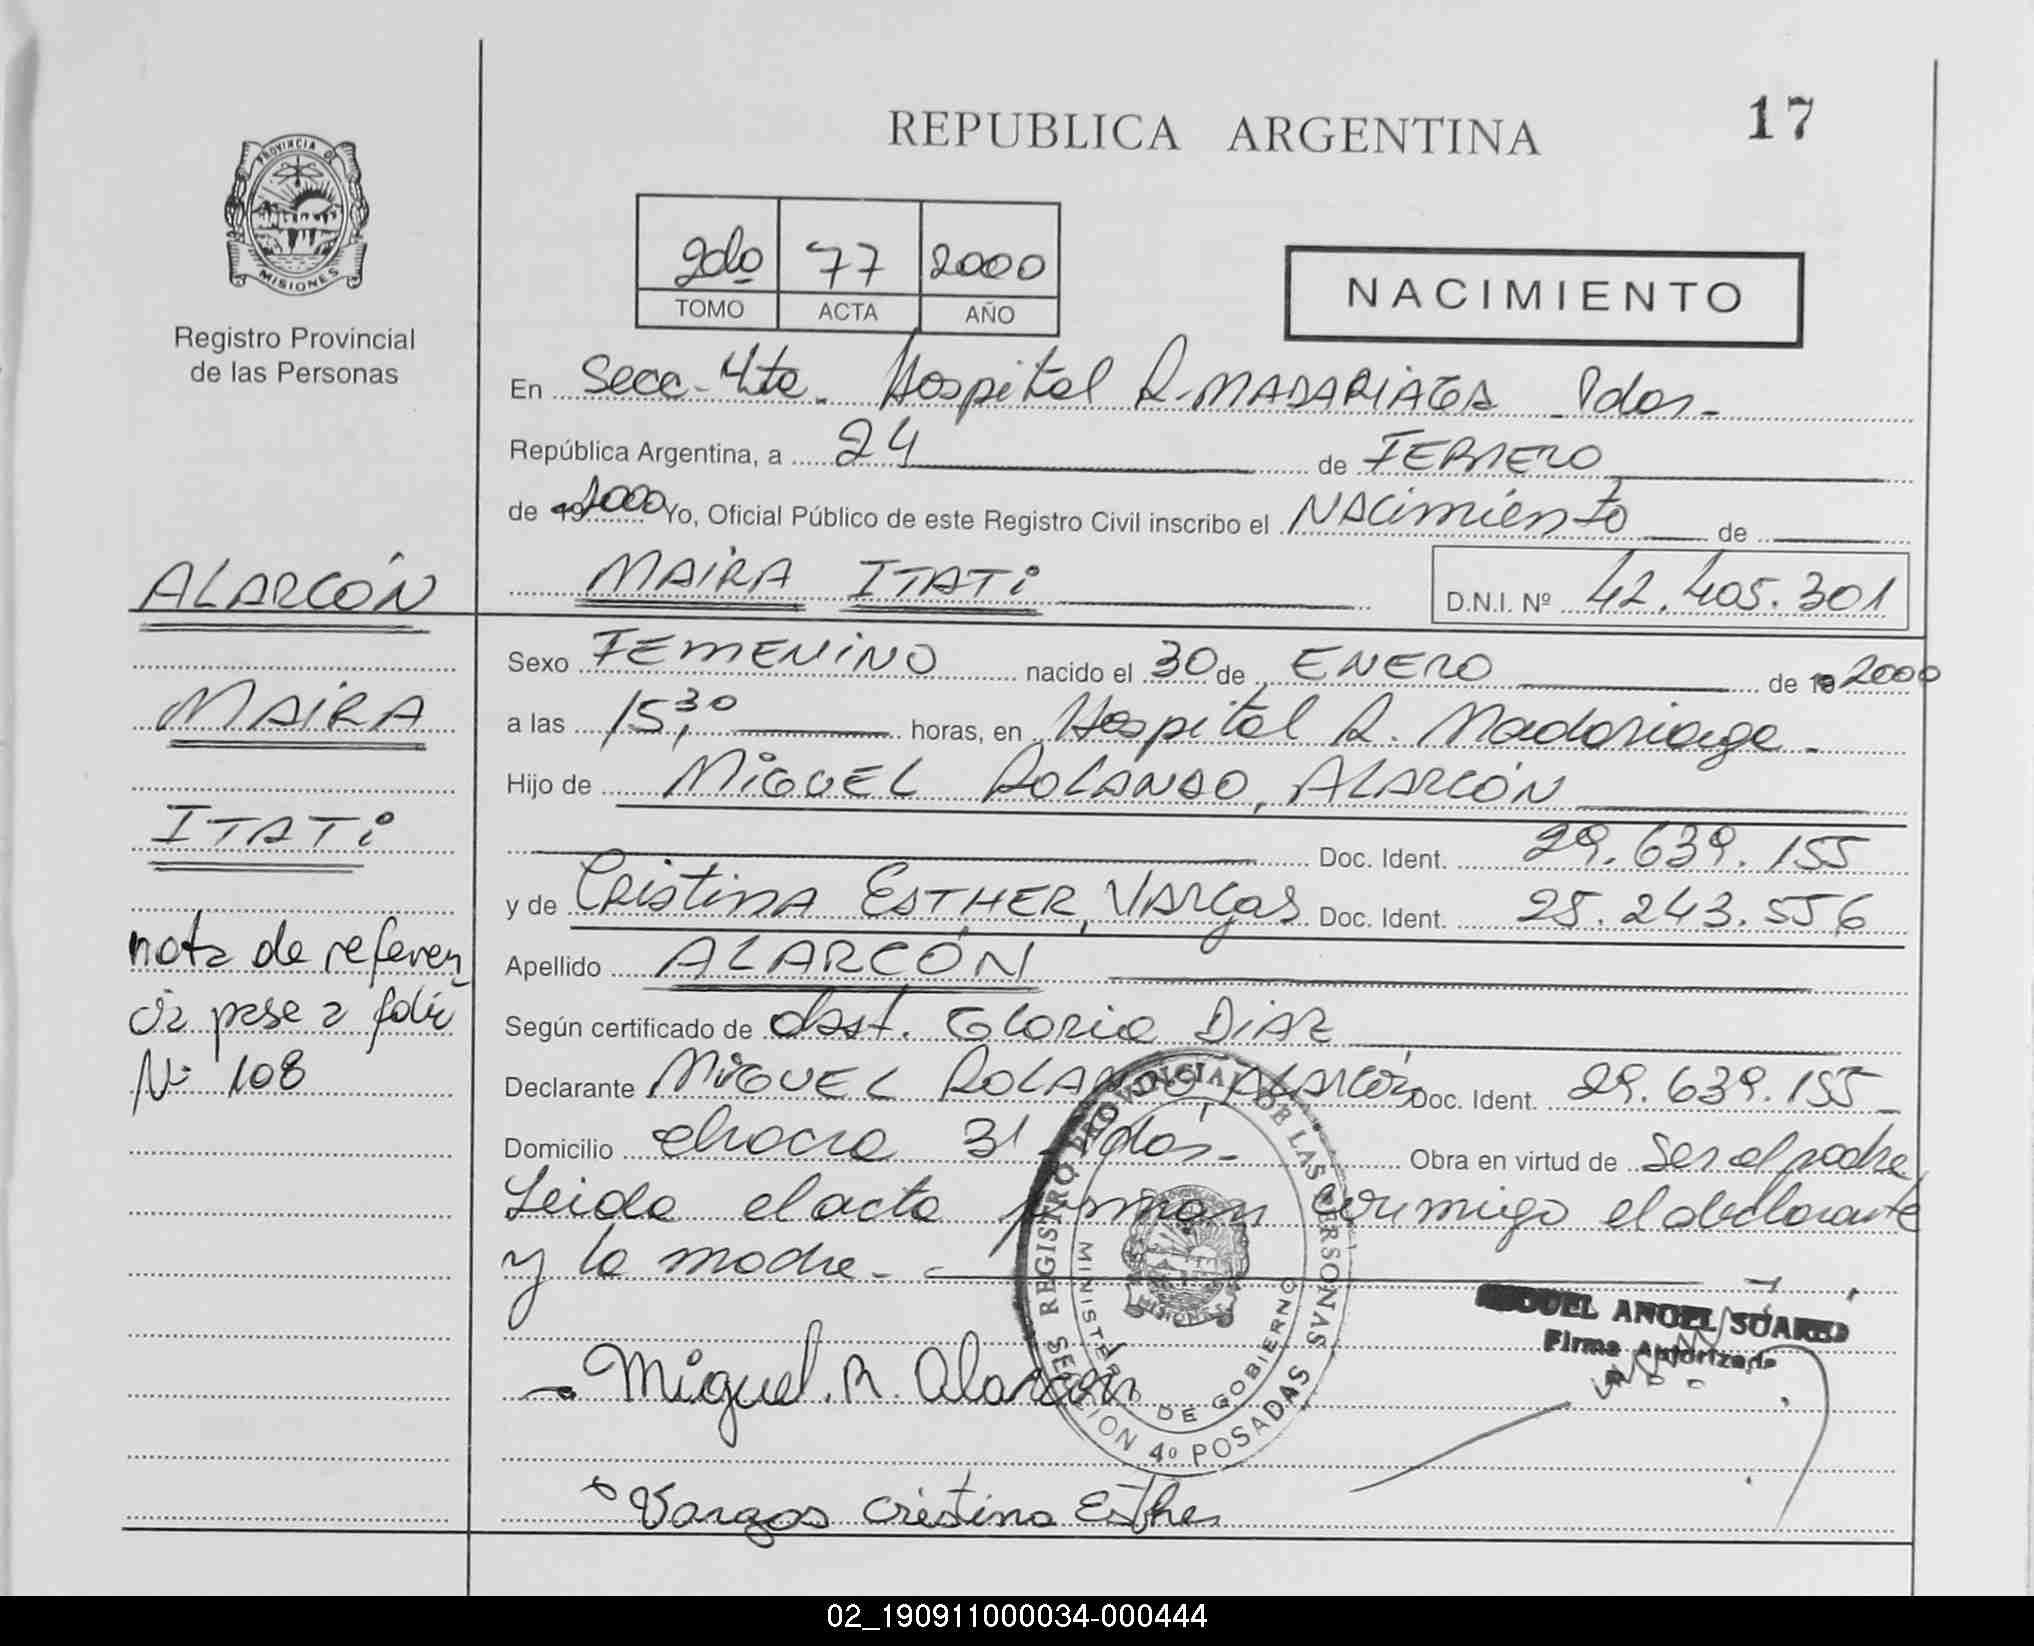 17
REPUBLICA ARGENTINA
PROVINCIA DE
MISIONES
Registro Provincial
de las Personas
2do 77 2000
TOMO ACTA AÑO
NACIMIENTO
En Secc. 4ta. Hospital R. MADARIAGA Pdas.
República Argentina, a 24 de FEBRERO
de 19 2000 Yo, Oficial Público de este Registro Civil inscribo el NACimiento de
MAiRA ITATi D.N.I. Nº 42.405.301
Sexo FEMENiNO nacido el 30 de ENERO de 19 2000
a las 15,30 horas, en Hospital R. Madariaga.
Hijo de MiGUEL ROLANDO, ALARCÓN
Doc. Ident. 29.639.155
y de CRistiNA ESTHER, VARgas Doc. Ident. 25.243.556
Apellido ALARCÓN
Según certificado de obst. Gloria DiAZ
Declarante MiGUEL ROLANDO ALARCÓN Doc. Ident. 29.639.155
Domicilio chacra 31 Pdas. Obra en virtud de Ser el padre
Leida el acta firman conmigo el declarante
y la madre.
ALARCÓN
MAiRA
ITATi
nota de referen
cia pase a folio
Nº 108
REGISTRO PROVINCIAL DE LAS PERSONAS
MINISTERIO DE GOBIERNO
SECCION 4º POSADAS
MISIONES
MIGUEL ANGEL SUAREZ
Firma Autorizada
Miguel. R. Alarcón
Vargas Cristina Esther
02_190911000034-000444